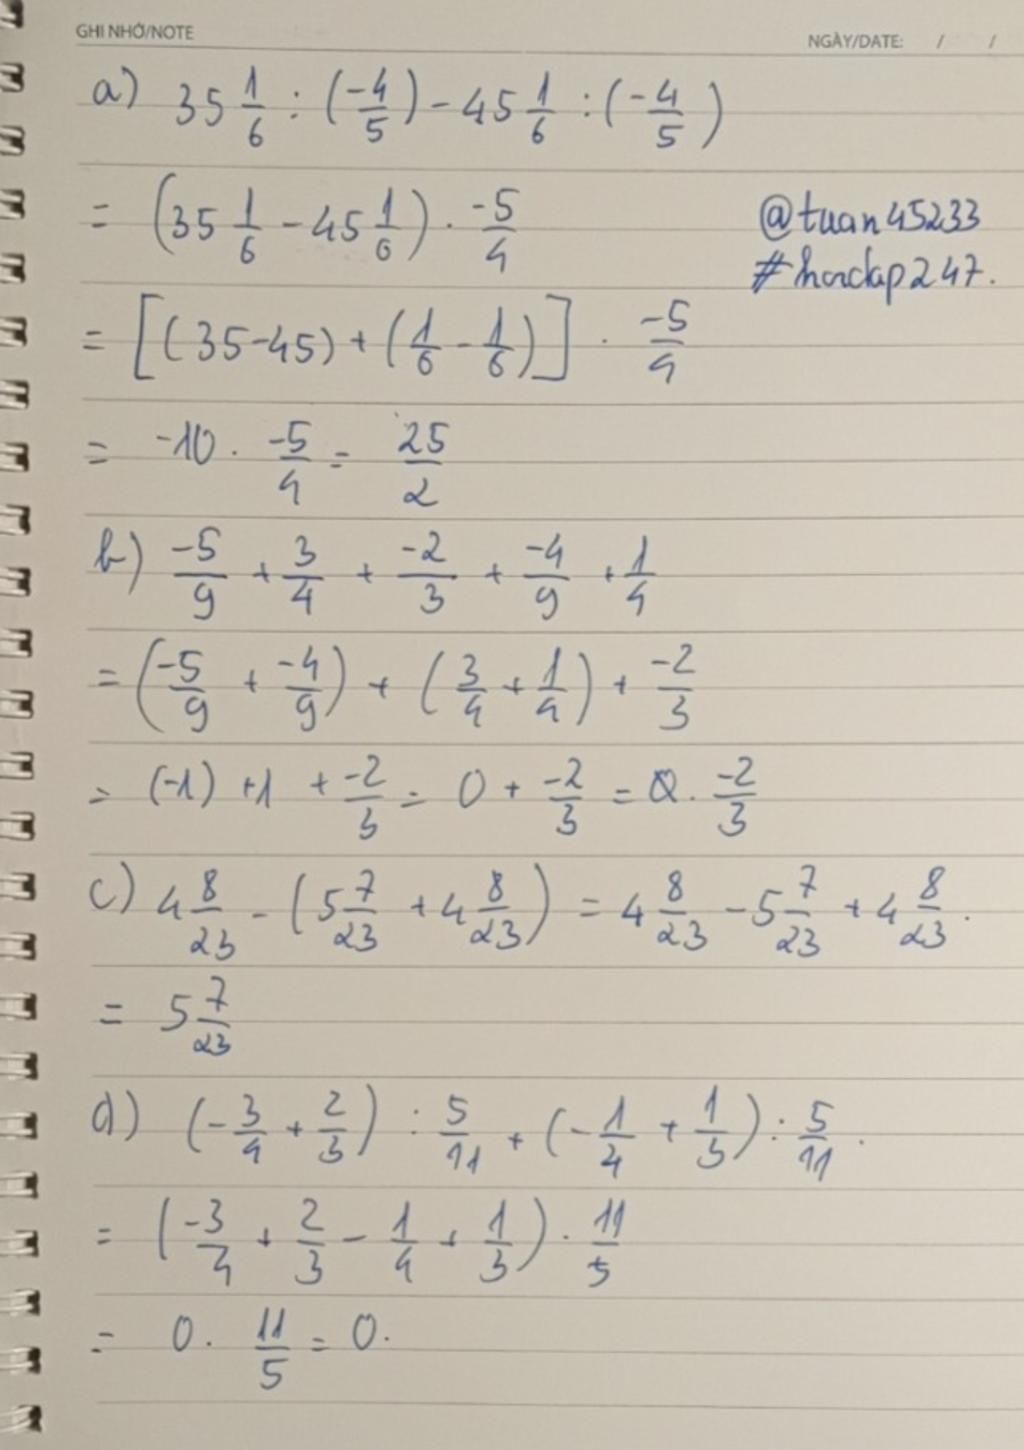 GHI NHỚ/NOTE
NGÀY/DATE: / /
a) 35 1/6 : (-4/5) - 45 1/6 : (-4/5)
= (35 1/6 - 45 1/6) . -5/4
@tuan45233
#hoctap247.
= [(35-45) + (1/6 - 1/6)] . -5/4
= -10 . -5/4 = 25/2
b) -5/9 + 3/4 + -2/3 + -4/9 + 1/4
= (-5/9 + -4/9) + (3/4 + 1/4) + -2/3
= (-1) +1 + -2/3 = 0 + -2/3 = . -2/3
c) 4 8/23 - (5 7/23 + 4 8/23) = 4 8/23 - 5 7/23 + 4 8/23.
= 5 7/23
d) (-3/4 + 2/3) : 5/11 + (-1/4 + 1/3) : 5/11.
= (-3/4 + 2/3 - 1/4 + 1/3) . 11/5
= 0 . 11/5 = 0.